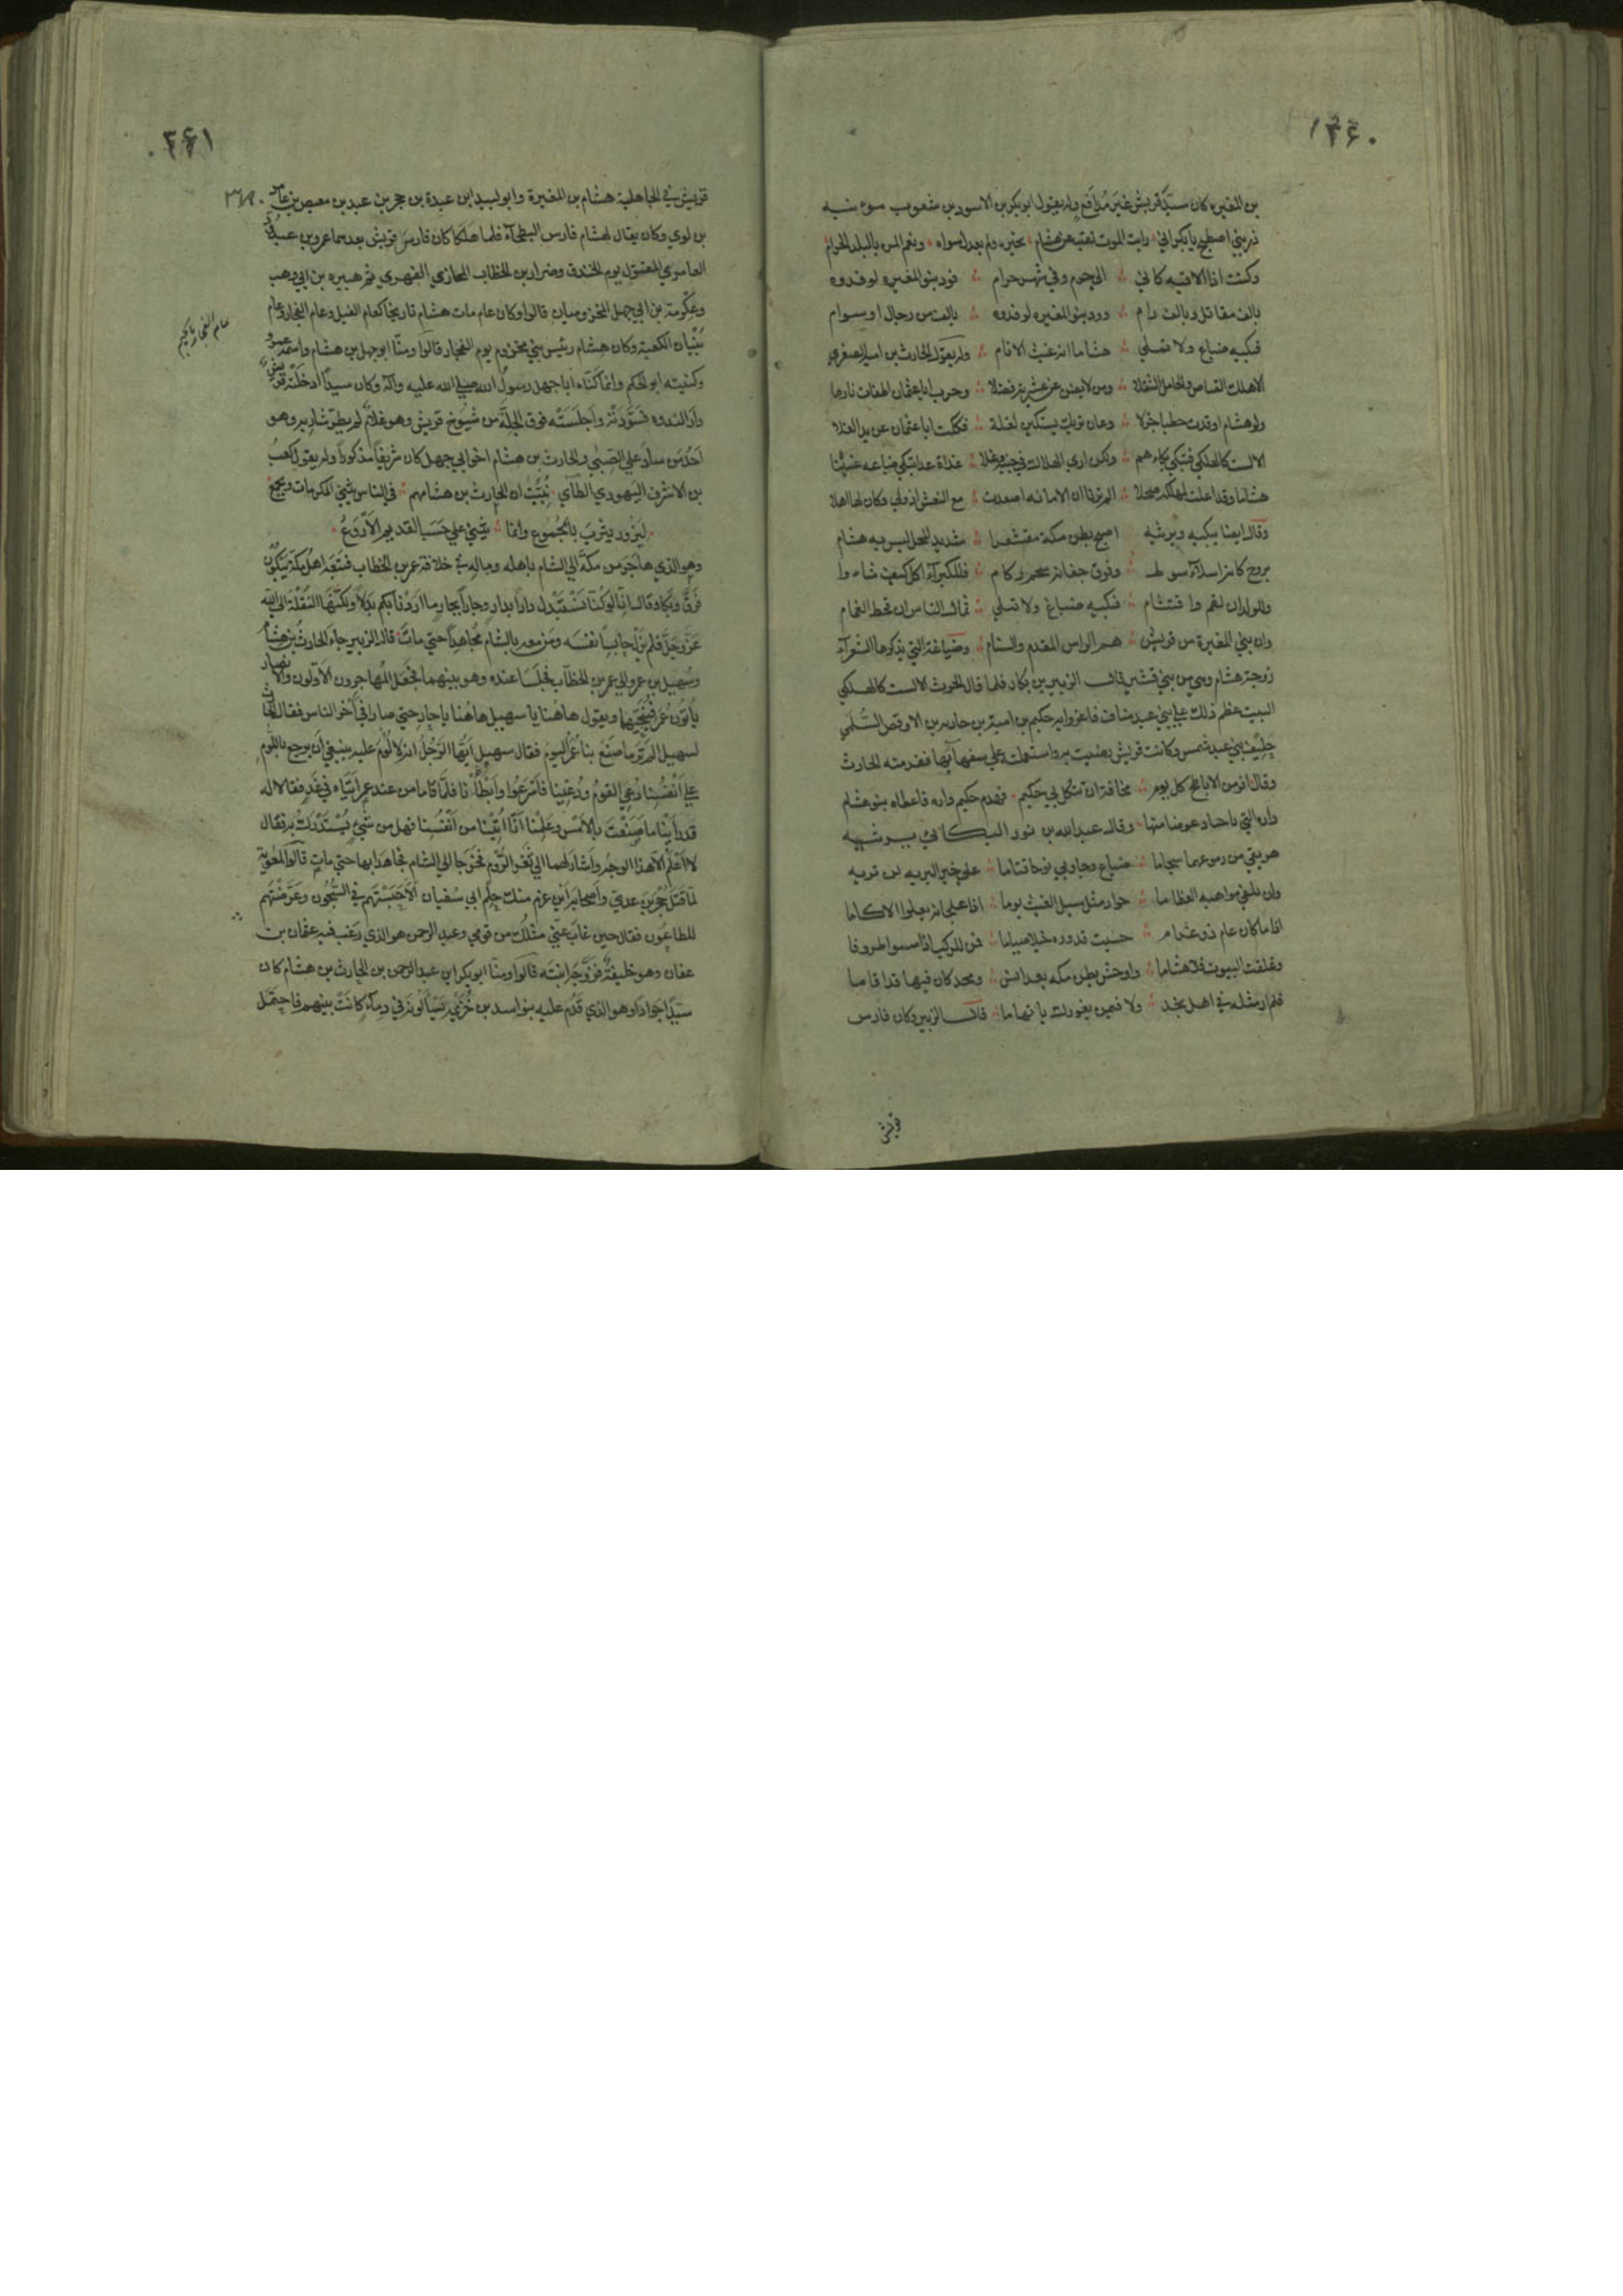 ١٣٤٠
بن المغيره كان سيد قريش غير مدافع وله يقول ابو بكر بن الاسود بن شعوب يرثيه
ذريني اصطبح يا بكر اني رايت الموت نقب عن هشام تخيره ولم يعدل سواه ونعم المر بالبلد الحرام
وكنت اذا الاقيه كاني الى حرم وفي شهر حرام فود بنو المغيره لو فدوه
بالف مقاتل وبالف رام وود بنو المغيره لو فدوه بالف من رجال او سوام
فبكيه ضباع ولا تملي هشاما انه غيث الانام وله يقول الحارث بن اميه الصغرى
الا هلك القناص والحامل الثقلا ومن لا يضن عن عشيرته فضلا وحرب ابا عثمان اطفات نارها
ولو هشام اوقدت حطبا جزلا وعان تريك يستكين لغلة فككت ابا عثمان عن يد الغلا
الا لست كالهلكى فتبكى بكاءهم ولكن ارى الهلاك في جنبه وغلا غداة غدا تبكي ضباعه غيثنا
هشاما وقد اعلت لمهلكه صحلا الم تريا ان الامانه اصعدت مع النعش اذ ولى وكان لها اهلا
وقال ايضا يبكيه ويرثيه اصبح بطن مكة مقشعرا شديد المحل ليس به هشام
يروح كانه اسلاء سوط وفوق جفانه شحم ركام فللكبراء اكل كيف شاءوا
وللولدان لقم واقتثام فبكيه ضباع ولا تملي ثمال الناس ان قحط الغمام
وان بني المغيرة من قريش هم الراس المقدم والسنام وضباعة التي يذكرها الشعراء
زوجة هشام وهي من بني قشير قال الزبير بن بكار فلما قال الحرث الا لست كالهلكى
البيت عظم ذلك على بني عبد مناف فاغروا به حكيم بن امية بن حارثه بن الاوقص السلمي
حليف بني عبد شمس وكانت قريش رضيت به واستعملته على سفهائها ففر منه الحارث
وقال افر من الاباطح كل يوم مخافة ان تنكل بي حكيم فهدم حكيم داره فاعطاه بنو هشام
داره التي باجياد عوضا منها وقال عبد الله بن ثور البكائي يرثيه
هريقي من دموعهما سجاما ضباع وجاوبي نوحا قياما على خير البريه لن تريه
ولن تلقي مواهبه العظاما جواد مثل سيل الغيث يوما اذا علجانه يعلوا الاكاما
اذا ما كان عام ذو عرام حسبت قدوره خيلا صياما فمن للركب اذا امسوا طروقا
وغلقت البيوت فلا هشاما واوحش بطن مكه بعد انس ومجد كان فيها قد اقاما
فلم ار مثله في اهل نجد ولا فيمن بغورك يا تهاما قال الزبير وكان فارس
قريش
٣٤١
٣٦٨
قريش في الجاهلية هشام بن المغيرة وابو لبيد ابن عبدة بن حجر بن عبد بن معيص بن عامر
بن لوي وكان يقال لهشام فارس البطحاء فلما هلكا كان فارس قريش بعدهما عمرو بن عبد
العامري المقتول يوم الخندق وضرار بن الخطاب المحاربي الفهري ثم هبيره بن ابي وهب
وعكرمة بن ابي جهل المخزوميان قالوا وكان عام مات هشام تاريخا كعام الفيل وعام الفجار وعام
بنيان الكعبة وكان هشام رئيس بني مخزوم يوم الفجار قالوا ومنا ابو جهل بن هشام واسمه عمرو
عام الفجار تاريخ
وكنيته ابو الحكم وانما كناه ابا جهل رسول الله صلى الله عليه وآله وكان سيدا ادخلته قريش
دار الندوه فسودته واجلسته فوق الجلة من شيوخ قريش وهو غلام لم يطر شاربه وهو
احد من ساد على الصبى والحارث بن هشام اخو ابي جهل كان شريفا مذكورا وله يقول كعب
بن الاشرف اليهودي الطاي نبئت ان الحارث بن هشامهم في الناس يبني المكرمات ويجمع
ليزور يثرب بالجموع وانما يبني على الحسب القديم الاروع
وهو الذي هاجر من مكة الى الشام باهله وماله في خلافة عمر بن الخطاب فتبعه اهل مكة يبكون
فرق وبكا وقال انا لو كنا نستبدل دارا بدار وجارا بجار ما اردنا بكم بدلا ولكنها النقلة الى الله
عز وجل فلم يزل حابسا نفسه ومن معه بالشام مجاهدا حتى مات قال الزبير جاء الحارث بن هشام
وسهيل بن عمرو الى عمر بن الخطاب فجلسا عنده وهو بينهما فجعل المهاجرون الاولون والانصار
ياتون عمر فينحيهما ويقول هاهنا يا سهيل هاهنا يا حار حتى صارا في آخر الناس فقال الحارث
لسهيل الم تر ما صنع بنا عمر اليوم فقال سهيل ايها الرجل انه لا لوم عليه ينبغي ان نرجع باللوم
على انفسنا دعي القوم ودعينا فاسرعوا وابطانا فلما قاما من عند عمر اتياه في غد فقالا له
قد راينا ما صنعت بالامس وعلمنا انا اتينا من انفسنا فهل من شيء يستدرك به فقال
لا اعلم الا هذا الوجه واشار لهما الى ثغر الروم فخرجا الى الشام فجاهدا بها حتى مات قالوا
لما قتل حجر بن عدي واصحابه اين عزب منك حلم ابي سفيان الا حبستهم في السجون وعرضتهم
للطاعون فقال حين غاب عني مثلك من قومي وعبد الرحمن هو الذي رغب فيه عثمان بن
عفان وهو خليفة فزوجه ابنته قالوا ومنا ابو بكر ابن عبد الرحمن بن الحارث بن هشام كان
سيدا جوادا وهو الذي قدم عليه بنو اسد بن خزيمة يسالونه في دماء كانت بينهم فاحتمل